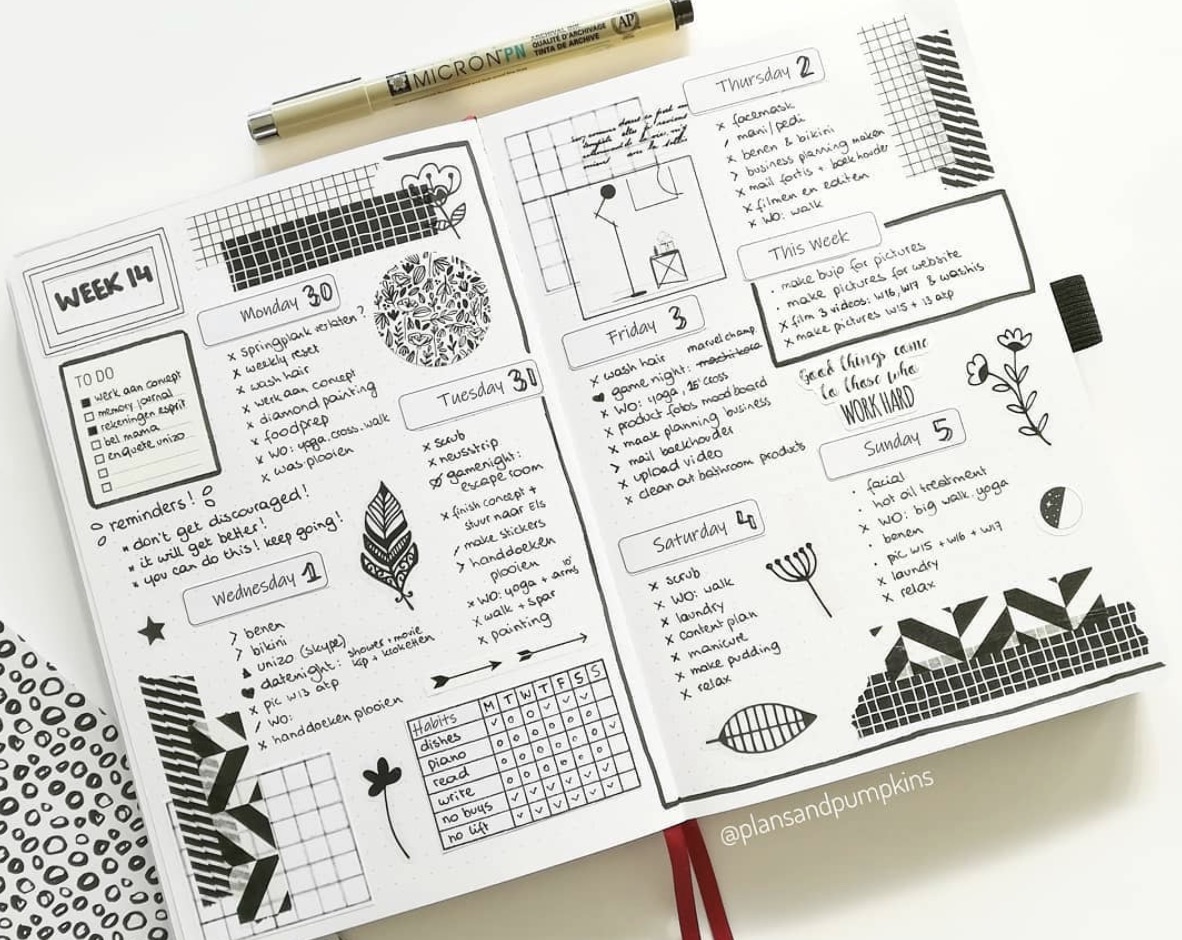 MICRON PN
ARCHIVAL INK
QUALITÉ D'ARCHIVAGE
TINTA DE ARCHIVE
AP
WEEK 14
TO DO
werk aan concept
memory journal
rekeningen esprit
bel mama
enquete unizo
reminders!
don't get discouraged!
it will get better!
you can do this! keep going!
Monday 30
x springplank verlaten?
x weekly reset
x wash hair
x werk aan concept
x diamond painting
x foodprep
x WO: yoga, cross, walk
x was plooien
Tuesday 31
x scrub
x neusstrip
gamenight:
escape room
x finish concept +
stuur naar Els
/ make stickers
> handdoeken
plooien
x WO: yoga + 10' arms
x walk + spar
x painting
Wednesday 1
> benen
> bikini
unizo (skype)
♥ datenight: shower + movie
kip + kroketten
x pic W13 atp
/ WO:
x handdoeken plooien
Habits M T W T F S S
dishes
piano
read
write
no buys
no lift
Thursday 2
x facemask
/ mani/pedi
x benen & bikini
> business planning maken
x mail fortis + boekhouder
x filmen en editen
x WO: walk
This Week
· make bujo for pictures
· make pictures for website
x film 3 videos: W16, W17 & washis
x make pictures W15 + 13 atp
Friday 3
x wash hair
♥ game night: marvel champ.
machi koro
x WO: yoga, 15' cross
x product fotos moodboard
x maak planning business
> mail boekhouder
x upload video
x clean out bathroom products
Good things come
to those who
WORK HARD
Saturday 4
x scrub
x WO: walk
x laundry
x content plan
x manicure
x make pudding
x relax
Sunday 5
· facial
· hot oil treatment
x WO: big walk, yoga
· benen
· pic W15 + W16 + W17
x laundry
x relax
@plansandpumpkins